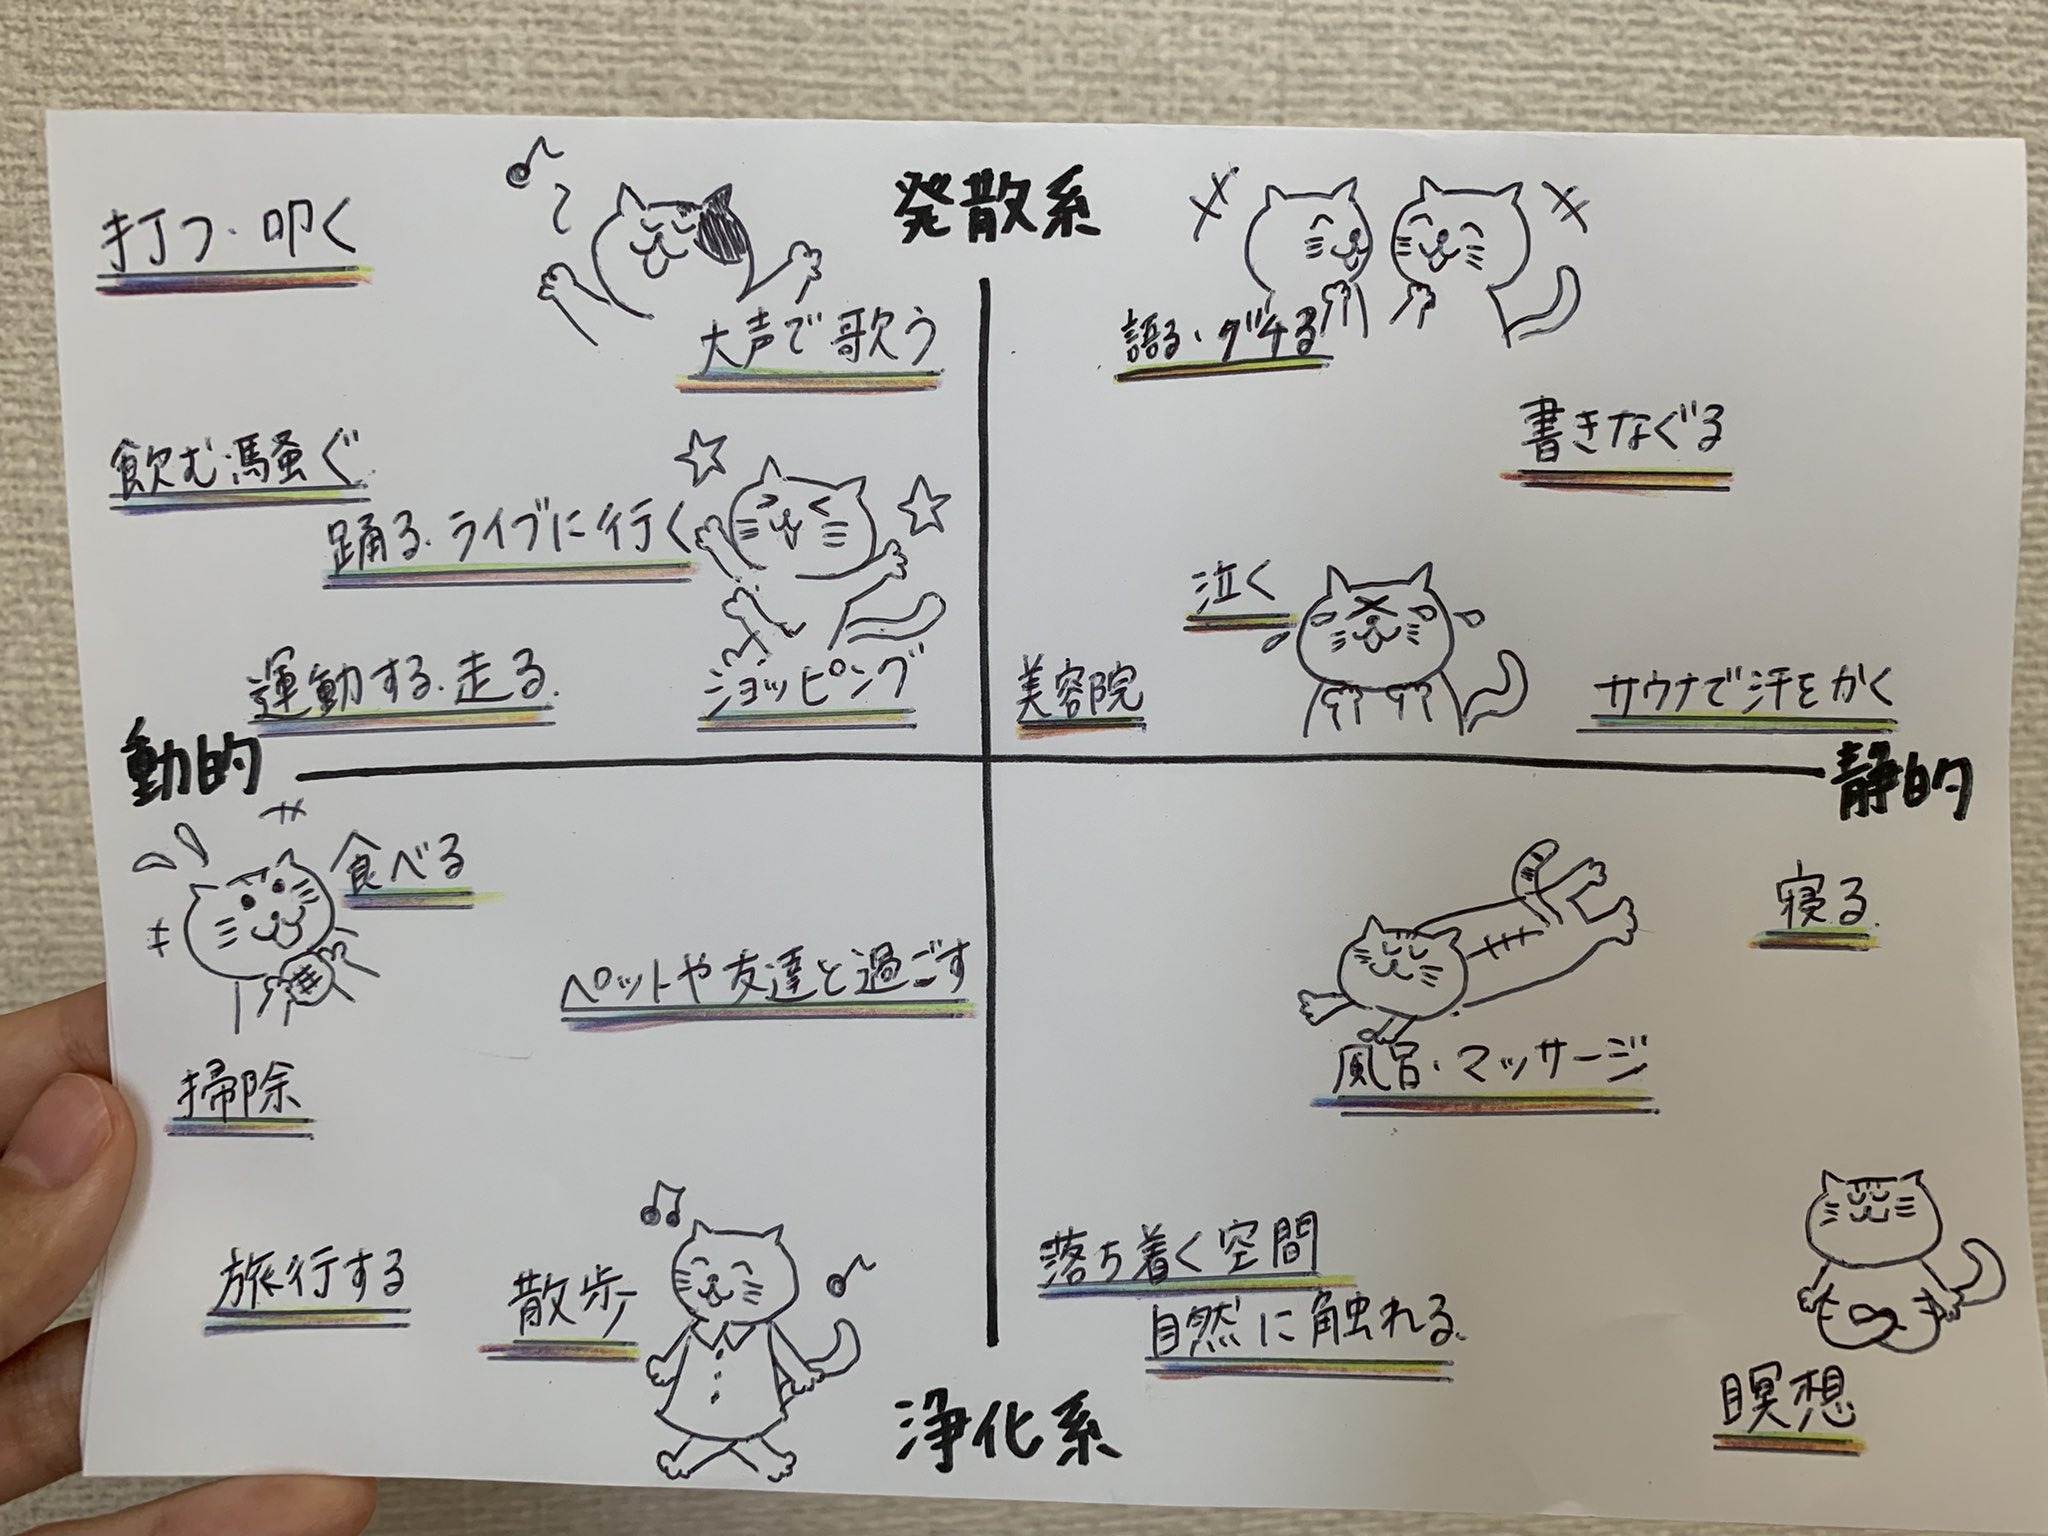 発散系
打つ・叩く
大声で歌う
飲む騒ぐ
踊る・ライブに行く
運動する・走る
ショッピング
語る・グチる
書きなぐる
泣く
美容院
サウナで汗をかく
動的
静的
食べる
ペットや友達と過ごす
掃除
旅行する
散歩
寝る
風呂・マッサージ
落ち着く空間
自然に触れる
瞑想
浄化系